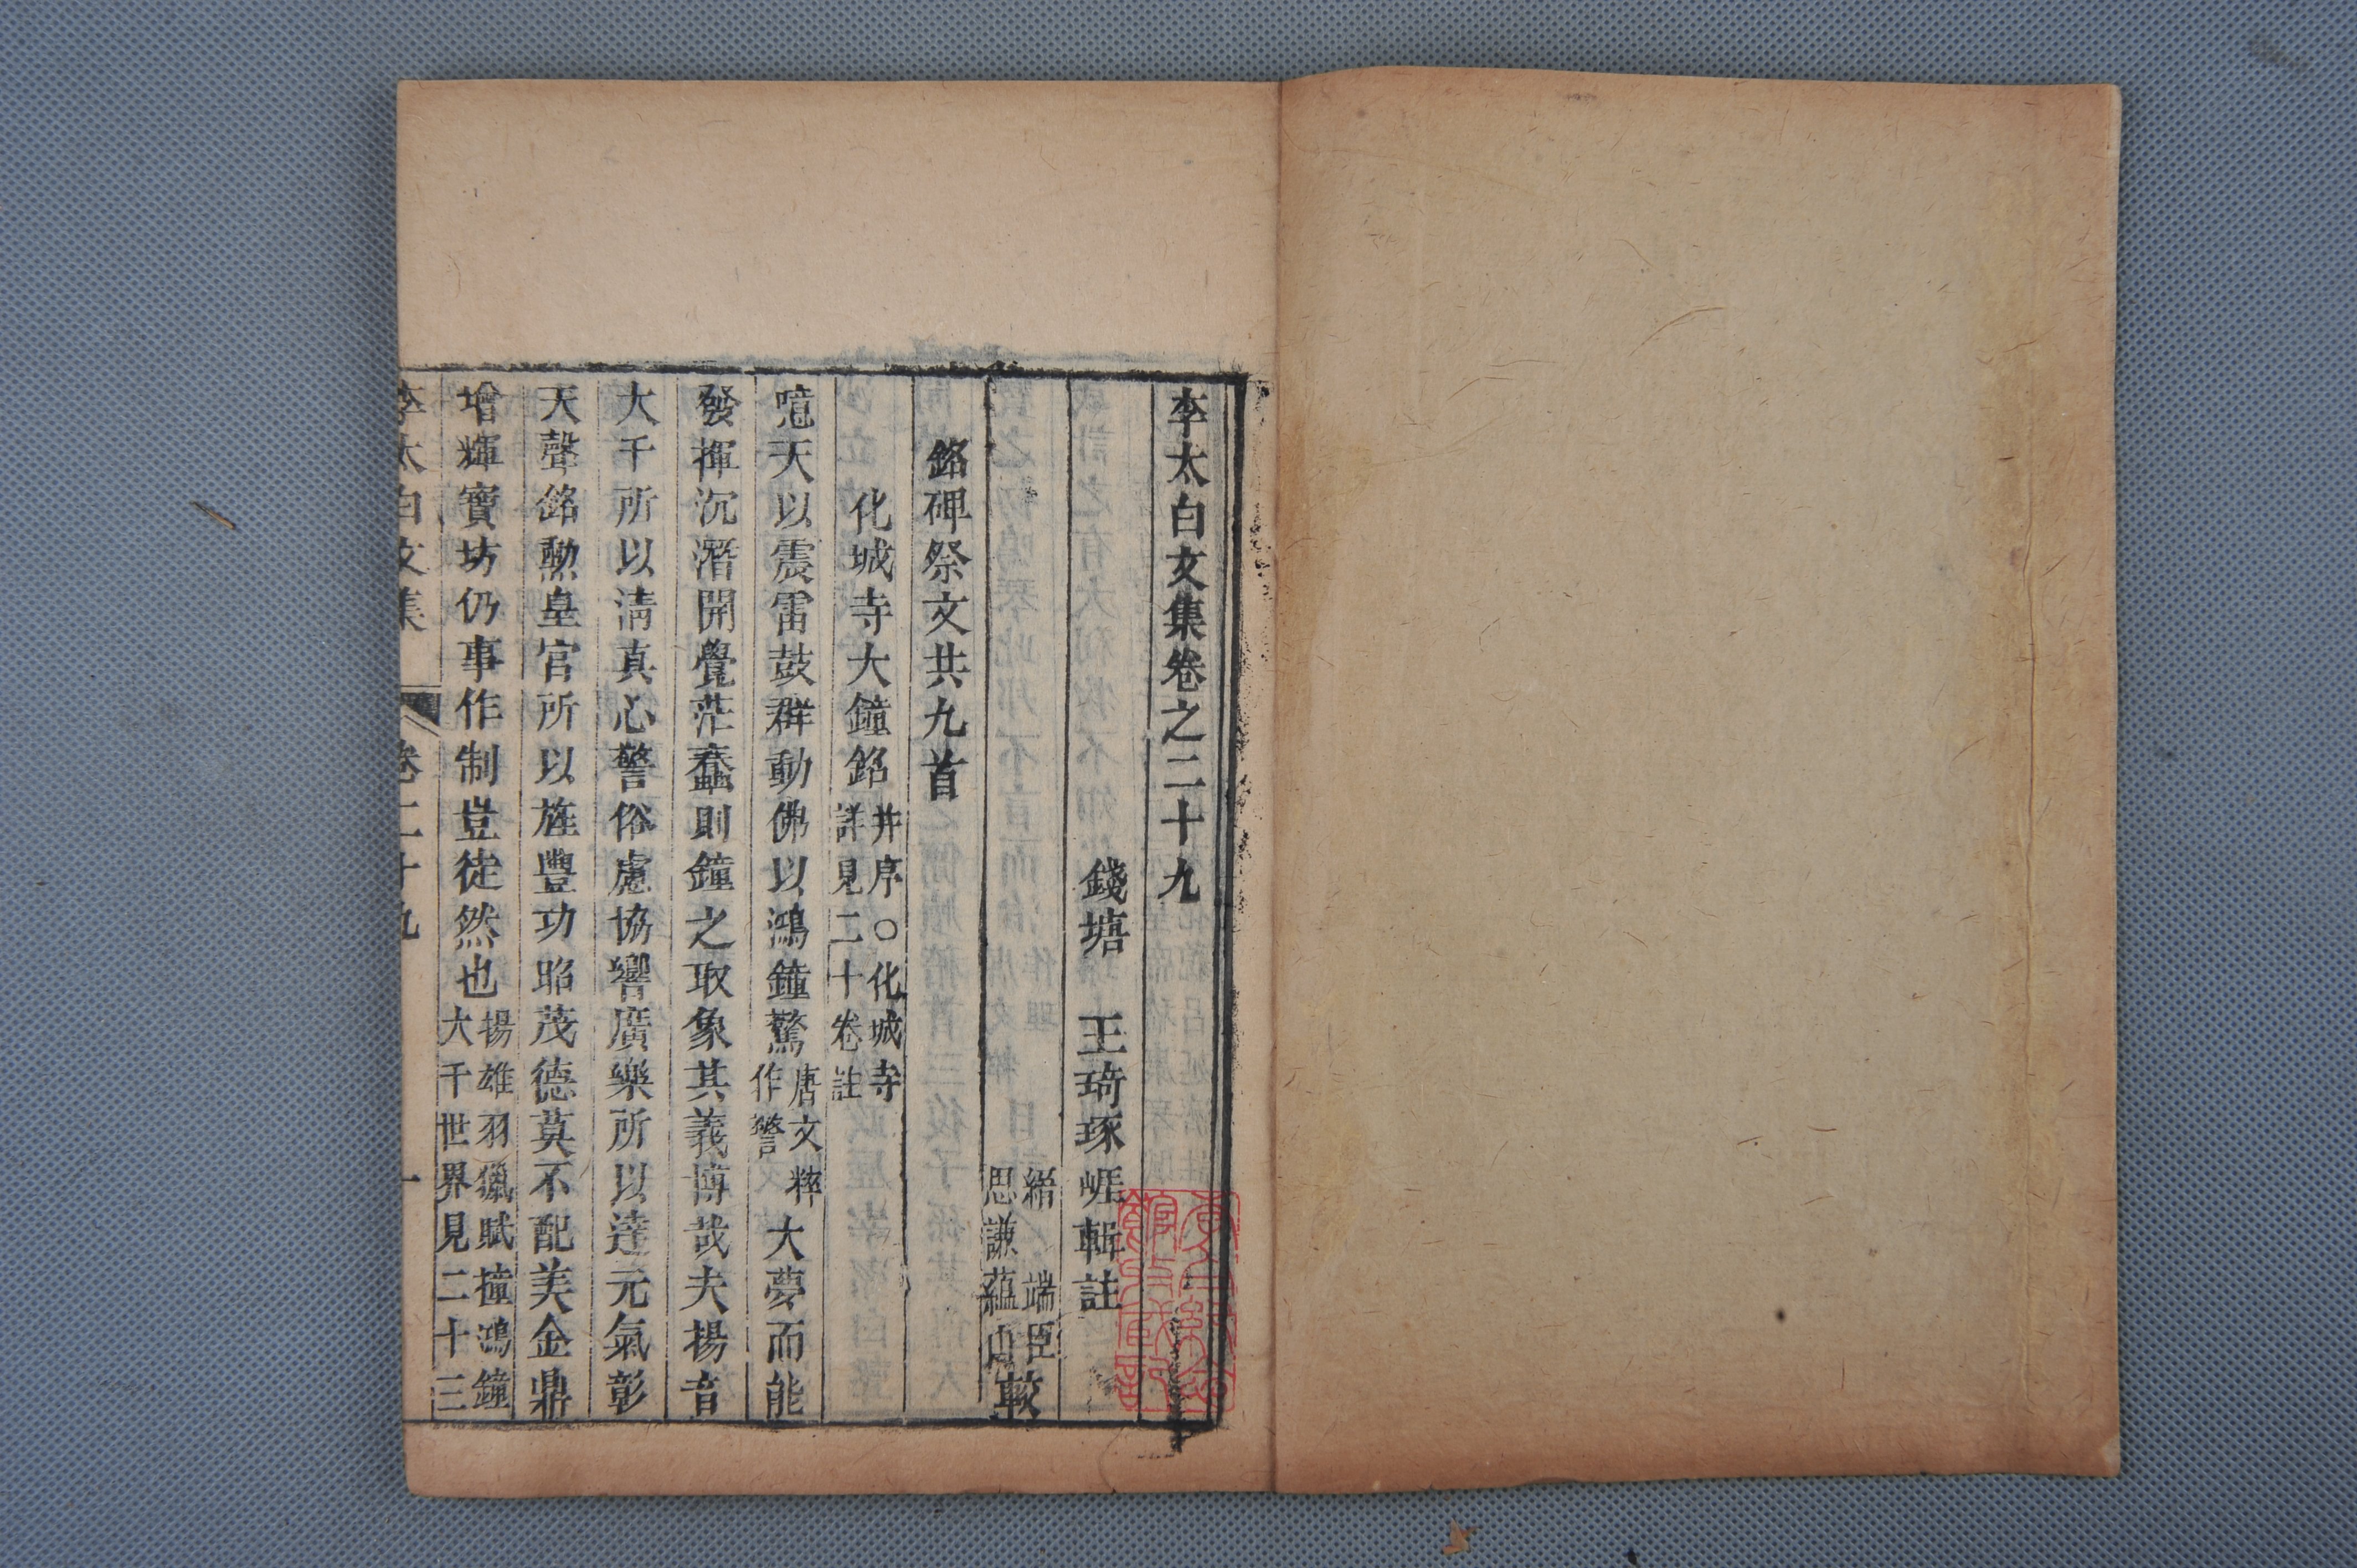 李太白文集卷之二十九
錢塘 王琦琢崖輯註
縉 端臣
思謙蘊山 較
銘碑祭文共九首
化城寺大鐘銘 并序○化城寺
詳見二十卷註
噫天以震雷鼓群動佛以鴻鐘驚 唐文粹
作警 大夢而能
發揮沉潛開覺茫蠢則鐘之取象其義博哉夫揚音
大千所以清真心警俗慮協響廣樂所以達元氣彰
天聲銘勲皇宫所以旌豐功昭茂德莫不配美金鼎
增輝寶坊仍事作制豈徒然也 揚雄羽獵賦撞鴻鐘
大千世界見二十三
李太白文集 卷二十九 一